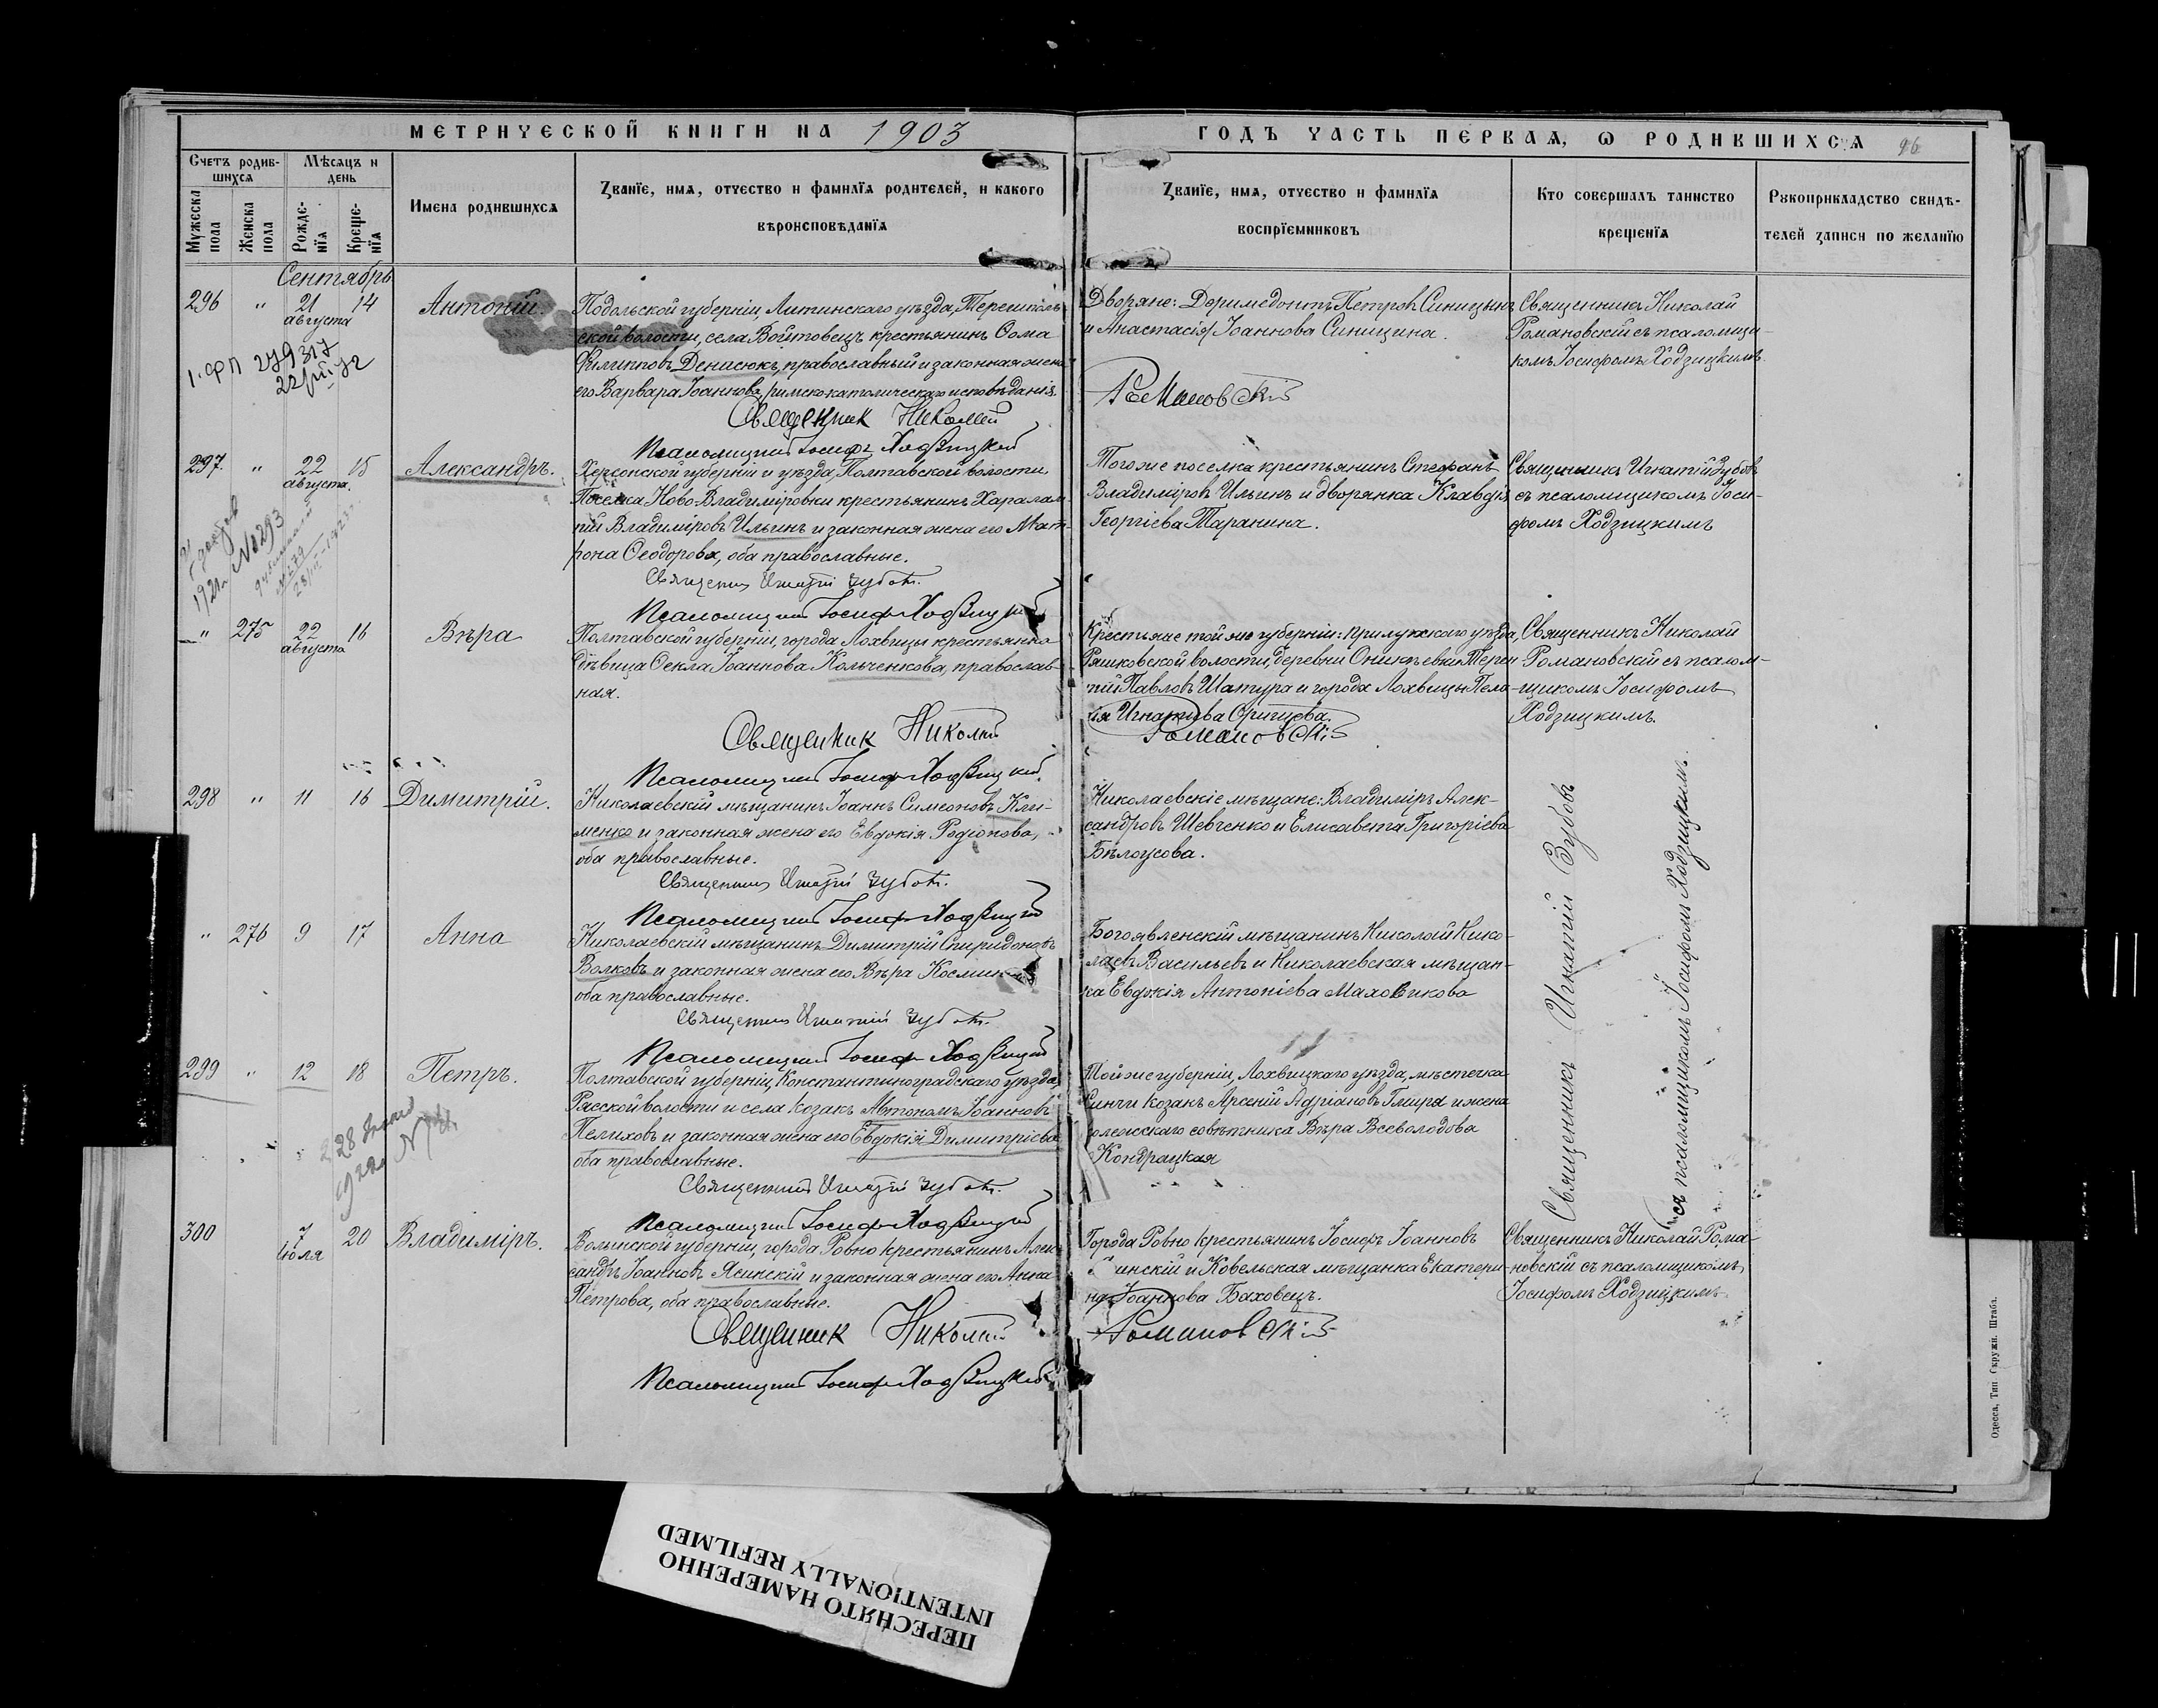 МЕТРИЧЕСКОЙ КНИГИ НА 1903
ГОДЪ ЧАСТЬ ПЕРВАЯ, Ѡ РОДИВШИХСЯ 96
Счетъ родив-
шихся
Мѣсяцъ и
день
Мужеска
пола
Женска
пола
Рожде-
нїя
Креще-
нїя
Имена родившихся
Званїе, имя, отчество и фамилїя родителей, и какого
вѣроисповѣданїя
Званїе, имя, отчество и фамилїя
воспрїемниковъ
Кто совершалъ таинство
крещенїя
Рукоприкладство свидѣ-
телей записи по желанїю
Сентябрь
296 " 21 14
августа
Антоній.
Подольской губерніи, Литинскаго уѣзда, Терешполь-
ской волости, села Войтовецъ крестьянинъ Ѳома
Филипповъ Денисюкъ, православный и законная жена
его Варвара Іоаннова, римско-католическаго исповѣданія.
Священник Николай
Романовскій
Псаломщикъ Іосифъ Ходзицкій
Дворяне: Доримедонтъ Петровъ Синицынъ
и Анастасія Іоаннова Синицина.
Священникъ Николай
Романовскій съ псаломщи-
комъ Іосифомъ Ходзицкимъ.
297 " 22 15
августа.
№ 293
Александръ.
Херсонской губерніи и уѣзда, Полтавской волости
Поселка Ново-Владиміровки крестьянинъ Харалам-
пій Владиміровъ Ильинъ и законная жена его Мат-
рона Ѳеодорова, оба православные.
Священник Игнатій Зубовъ.
Псаломщикъ Іосифъ Ходзицкій
Того же поселка крестьянинъ Стефанъ
Владиміровъ Ильинъ и дворянка Клавдія
Георгіева Таранина.
Священникъ Игнатій Зубовъ
съ псаломщикомъ Іоси-
фомъ Ходзицкимъ
" 275 22 16
августа
Вѣра
Полтавской губерніи, города Лохвицы крестьянка
дѣвица Ѳекла Іоаннова Кольченкова, православ-
ная.
Священник Николай
Романовскій
Псаломщикъ Іосифъ Ходзицкій.
Крестьяне той же губерніи: Прилукскаго уѣзда,
Ряшковской волости, деревни Оникѣевки Терен-
тій Павловъ Шатура и города Лохвицы Пела-
ія Игнатіева
Священникъ Николай
Романовскій съ псалом-
щикомъ Іосифомъ
Ходзицкимъ.
298 " 11 16
Димитрій.
Николаевскій мѣщанинъ Іоаннъ Симеоновъ Кли-
менко и законная жена его Евдокія Родіонова,
оба православные.
Священник Игнатій Зубовъ.
Псаломщикъ Іосифъ Ходзицкій
Николаевскіе мѣщане: Владиміръ Алек-
сандровъ Шевченко и Елисавета Григоріева
Бѣлоусова.
Священникъ Игнатій Зубовъ
съ псаломщикомъ Іосифомъ Ходзицкимъ.
" 276 9 17
Анна
Николаевскій мѣщанинъ Димитрій Спиридоновъ
Волковъ и законная жена его Вѣра
оба православные.
Священник Игнатій Зубовъ.
Псаломщикъ Іосифъ Ходзицкій
Богоявленскій мѣщанинъ Николай Нико-
лаевъ Васильевъ и Николаевская мѣщан-
ка Евдокія Антоніева Маховикова
299 " 12 18
Петръ.
Полтавской губерніи, Константиноградскаго уѣзда,
Ряской волости и села козакъ Автономъ Іоанновъ
Пелиховъ и законная жена его Евдокія Димитріева
оба православные.
Священник Игнатій Зубовъ.
Псаломщикъ Іосифъ Ходзицкій
Той же губерніи, Лохвицкаго уѣзда, мѣстечка
козакъ Арсеній Адріановъ Гмиря и жена
колежскаго совѣтника Вѣра Всеволодова
Кондрацкая
300 7 20
Іюля
Владиміръ.
Волынской губерніи, города Ровно крестьянинъ Алек-
сандръ Іоанновъ Ясинскій и законная жена его Анна
Петрова, оба православные.
Священник Николай
Романовскій
Псаломщикъ Іосифъ Ходзицкій
Города Ровно крестьянинъ Іосифъ Іоанновъ
инскій и Ковельская мѣщанка Екатери-
на Іоаннова Баховецъ.
Священникъ Николай Рома-
новскій съ псаломщикомъ
Іосифомъ Ходзицкимъ
Одесса, Тип. Окружн. Штаба.
ПЕРЕСНЯТО НАМЕРЕННО
INTENTIONALLY REFILMED